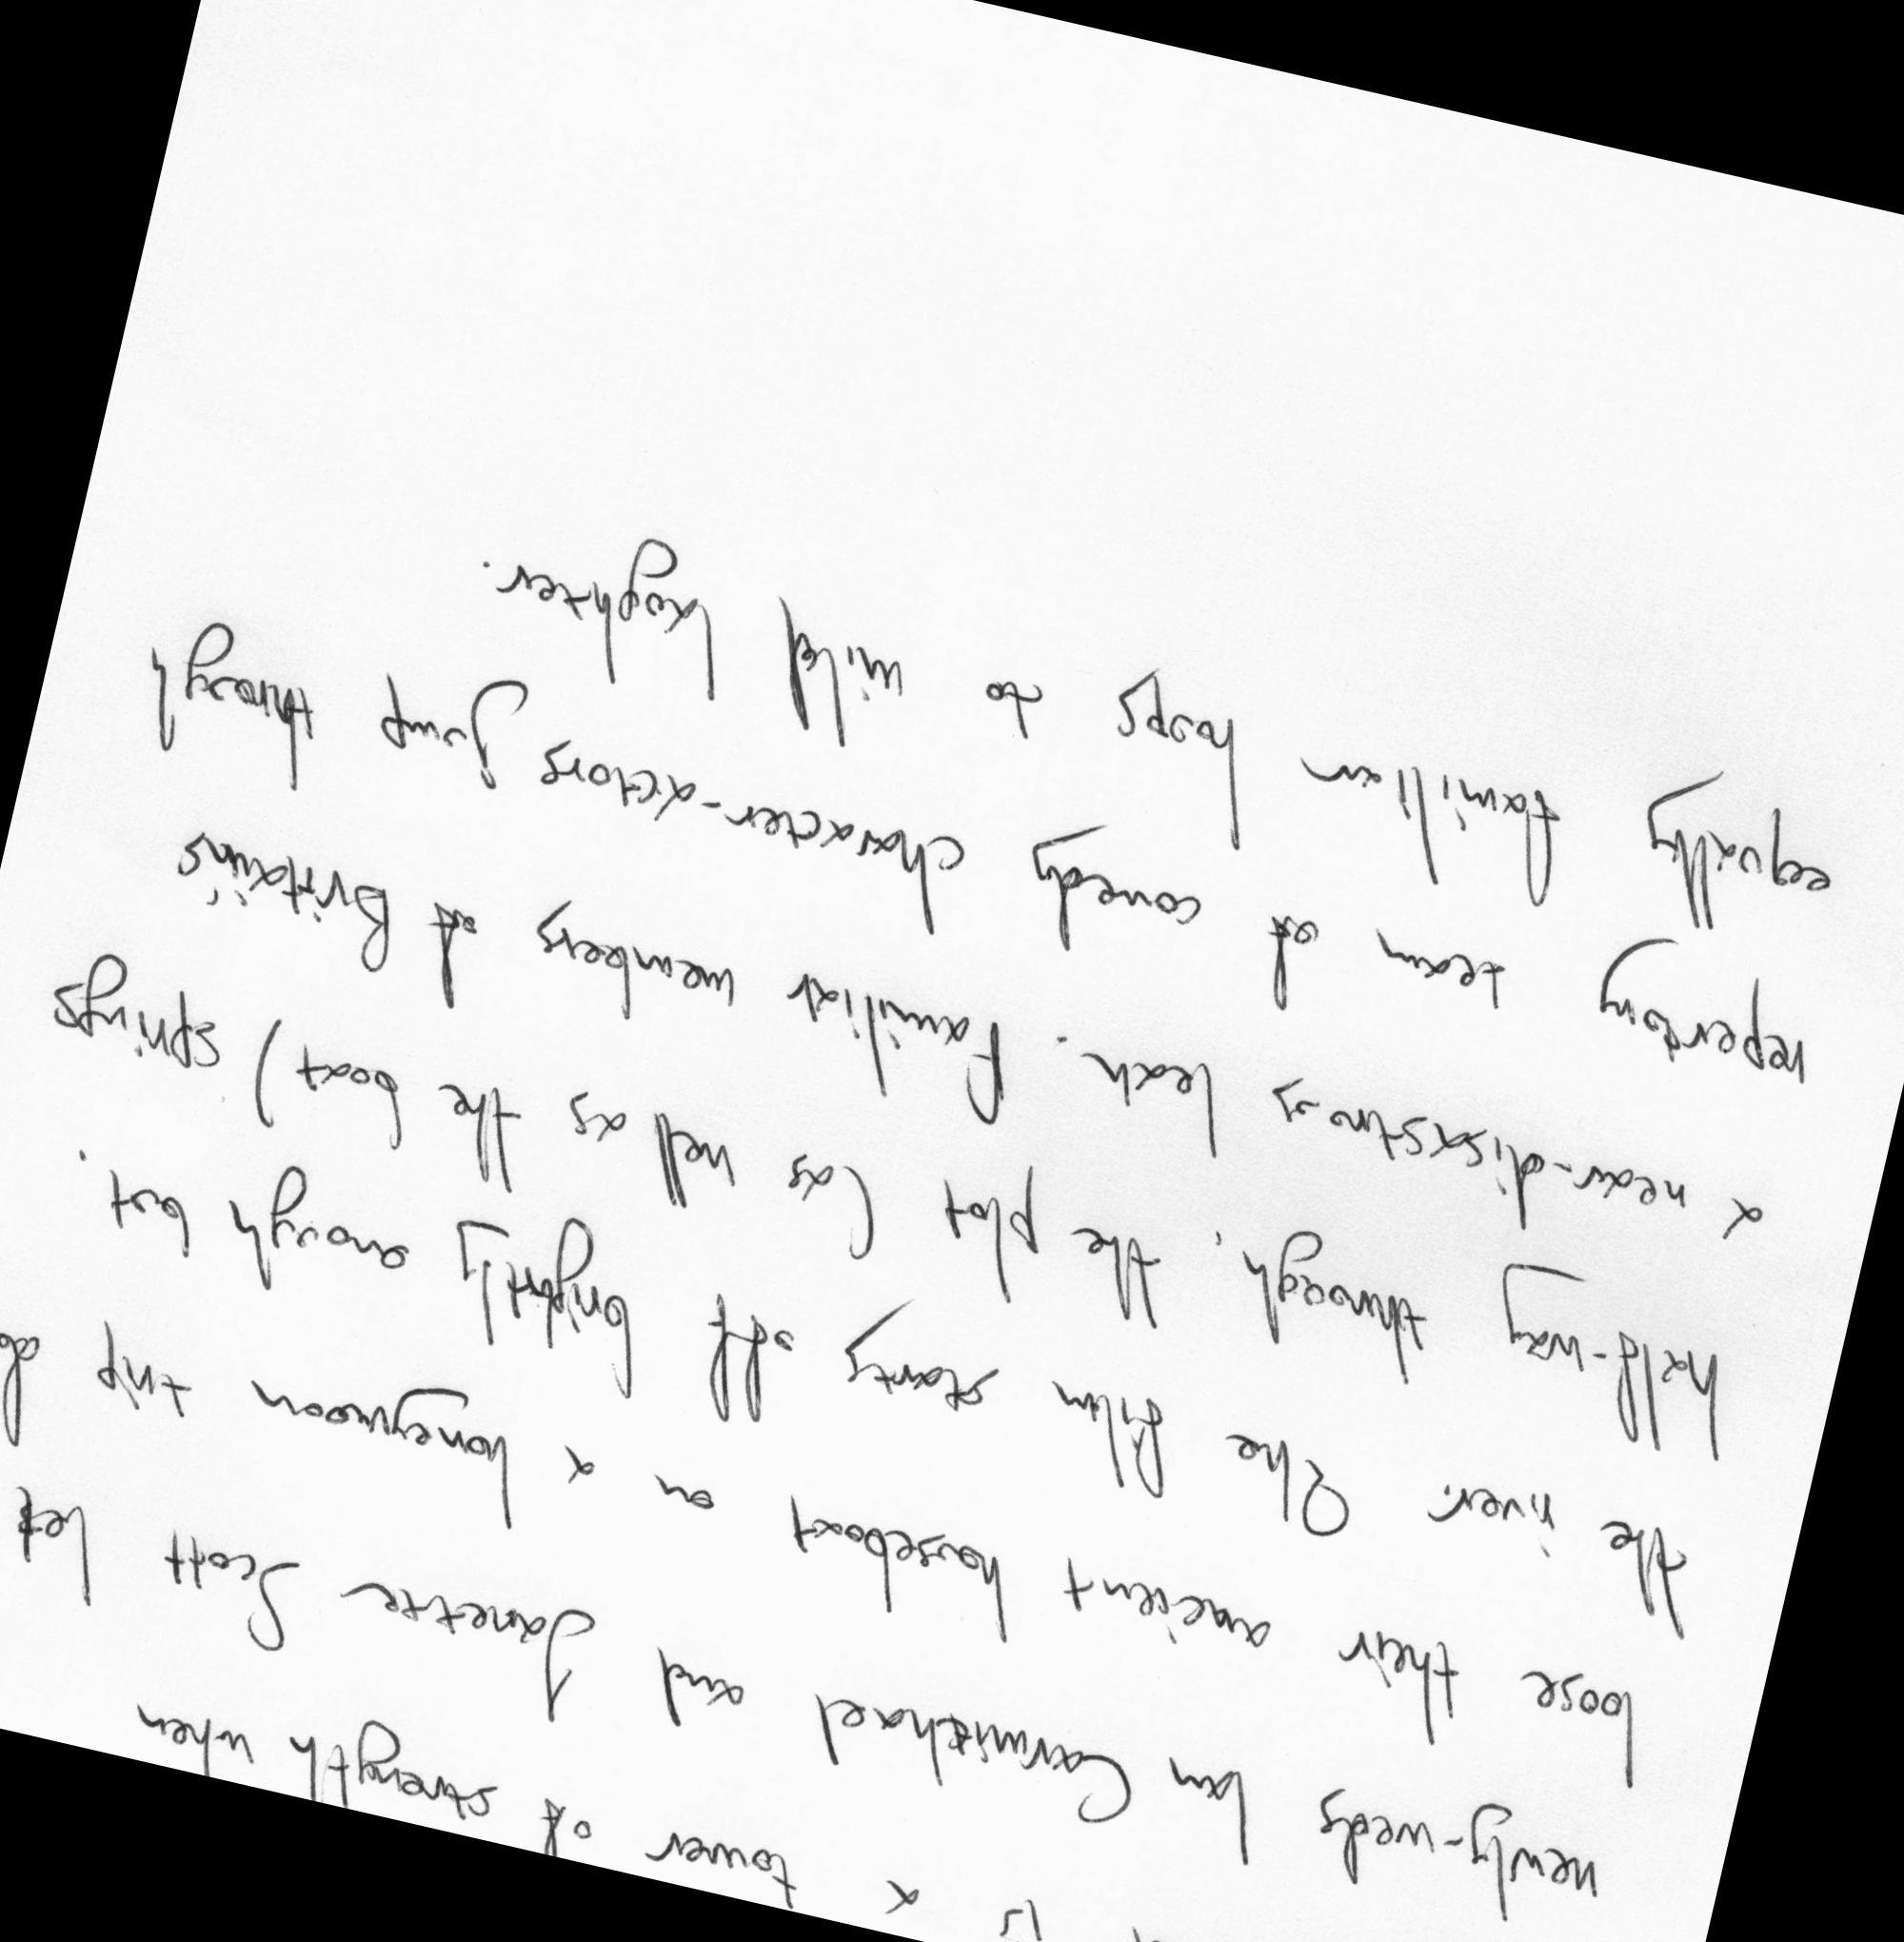 is a tower of strength when
newly-weds Ian Carmichael and Janette Scott let
loose their ancient houseboat on a honeymoon trip
the river. The film starts off brightly enough but.
half-way through, the plot (as well as the boat) springs
a near-disastrous leak. Familiar members of Britain's
repertory team of comedy character-actors jump through
equally familiar hoops to mild laughter.